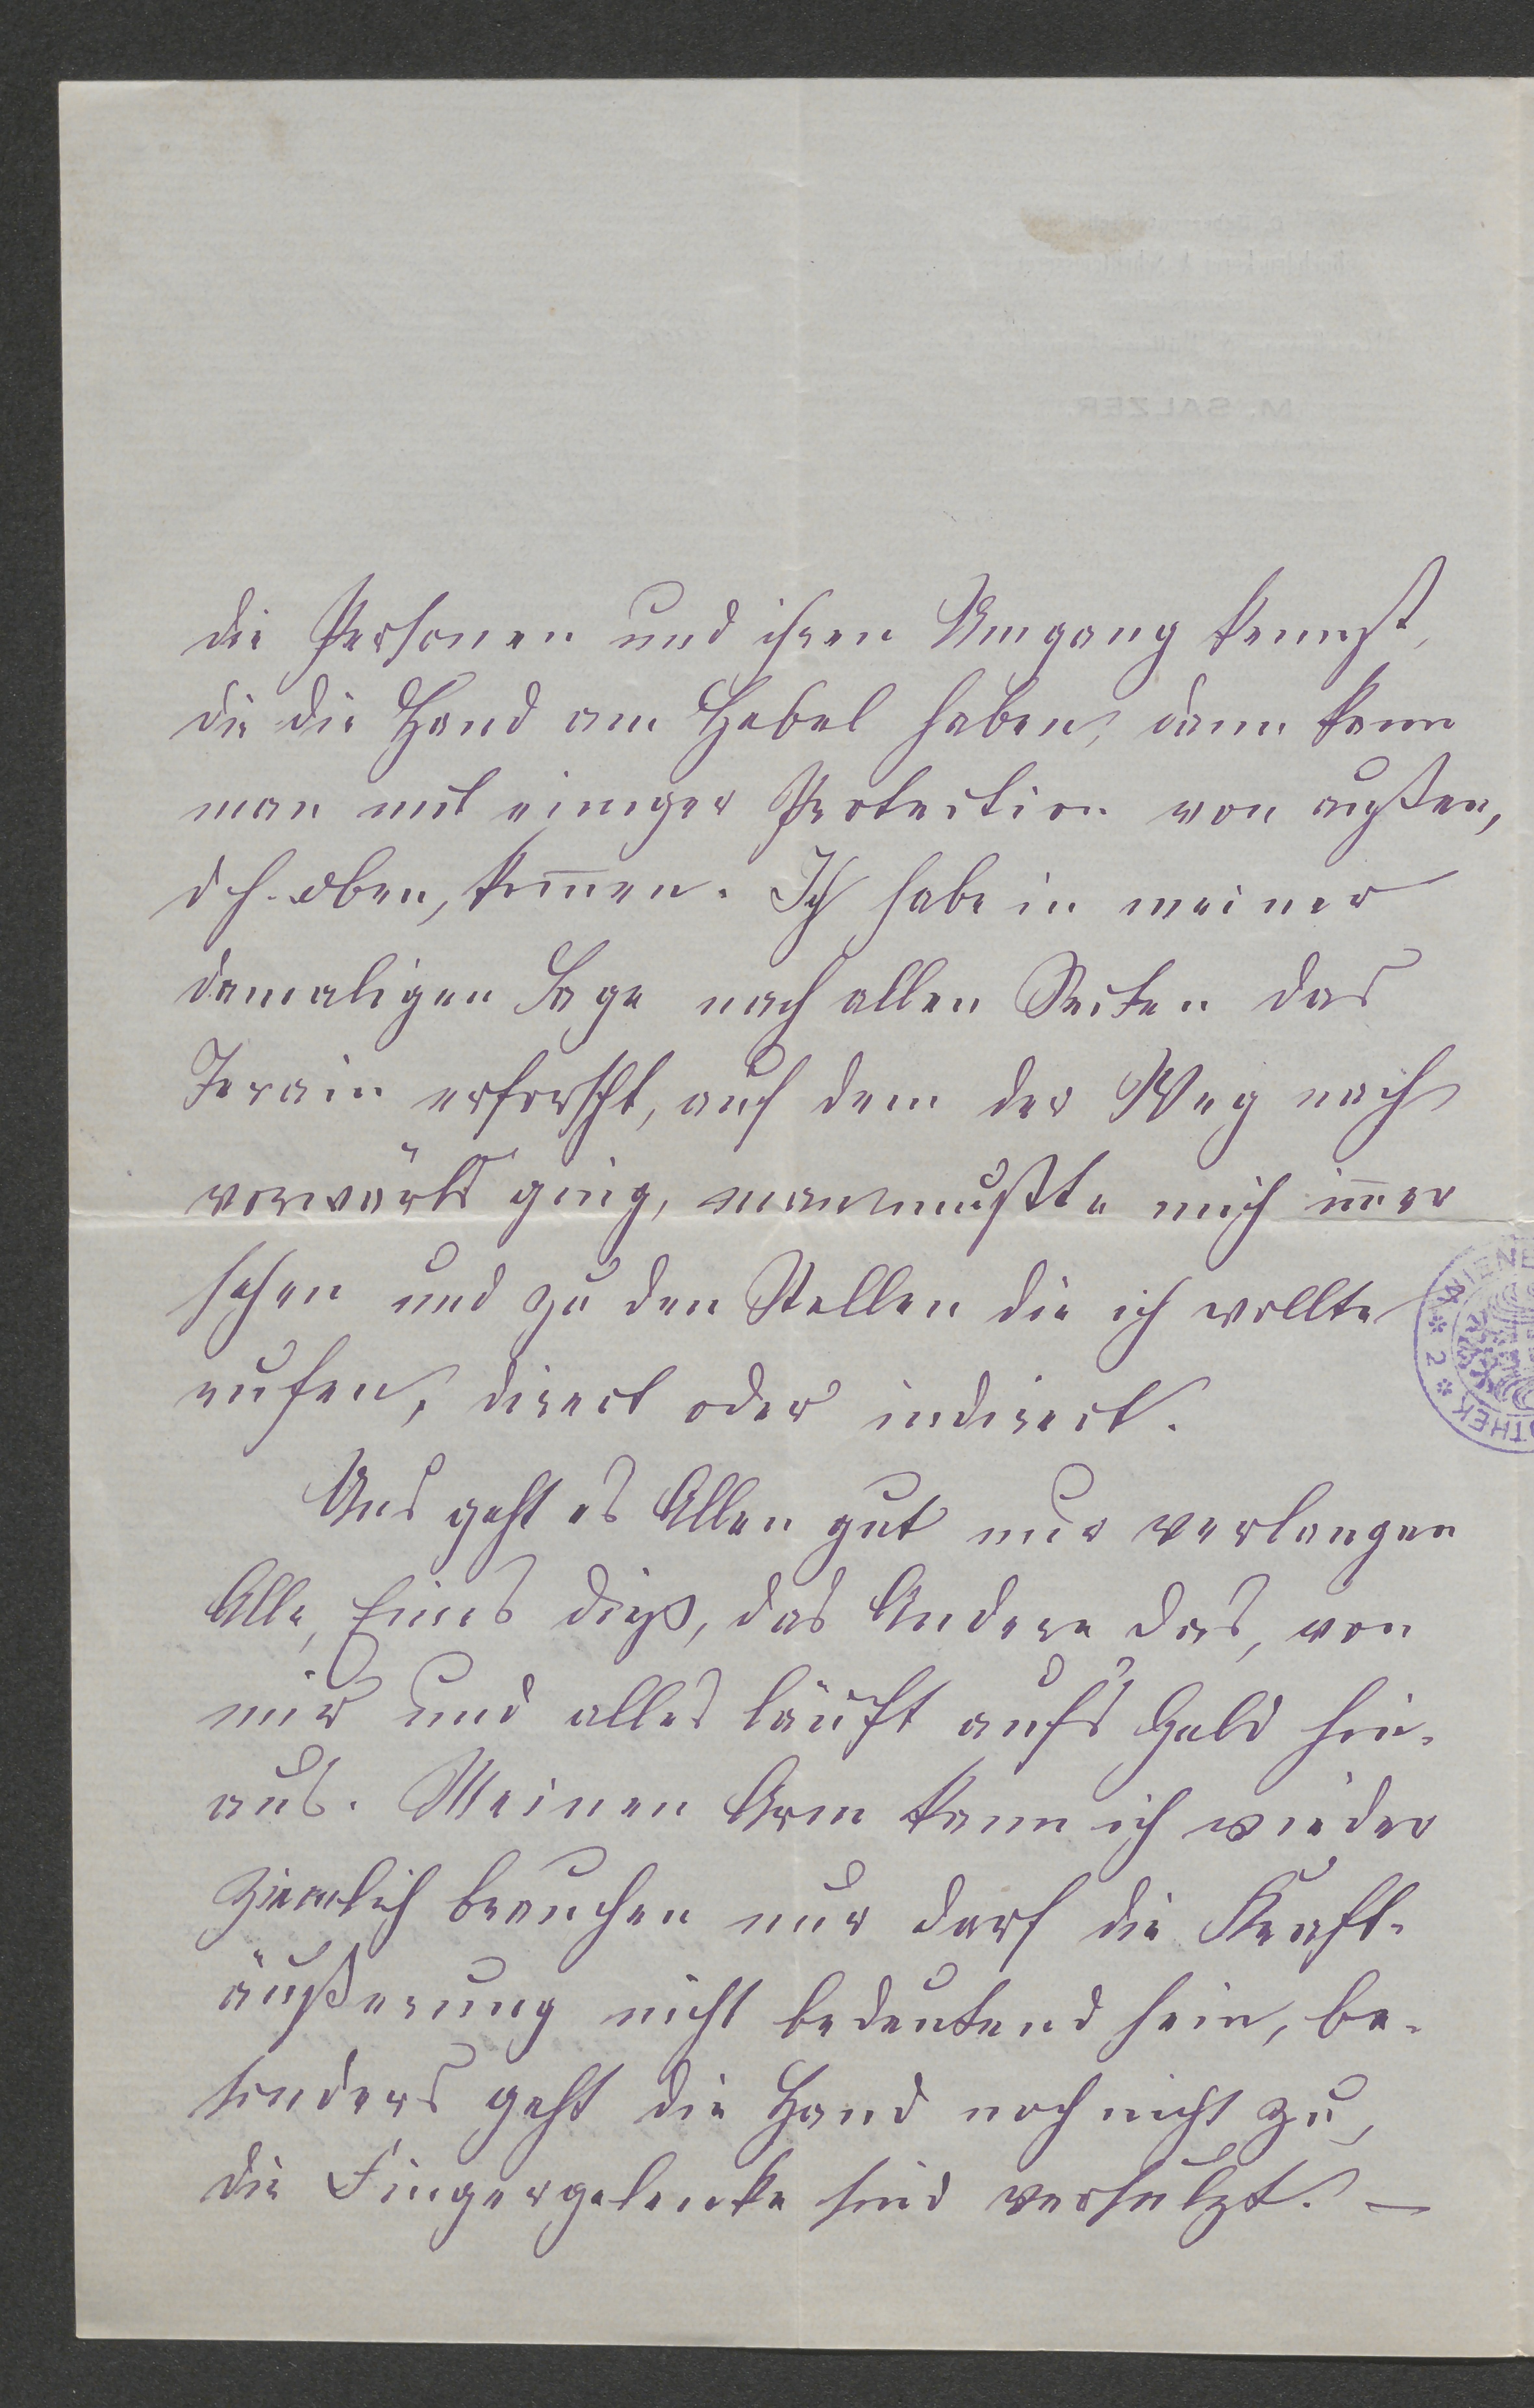 die Personen und ihren Umgang kennst,
die die Hand am Hebel haben, dann kann
man mit einiger Protection von außen,
d h. oben, kom̅en. Ich habe in meiner
damaligen Lage nach allen Seiten das
Terain erforscht, auf dem der Weg nach
vorwärts ging, man mußte mich im̅er
sehen und zu den Stellen die ich wollte
rufen, direct oder indirect.
Uns geht es Allen gut nur verlangen
Alle, Eines dieß, das Andere das, von
mir und alles läuft auf's Geld hin-
aus. Meinen Arm kann ich wieder
ziemlich brauchen nur darf die Kraft-
äußerung nicht bedeutend sein, be-
sonders geht die Hand noch nicht zu,
die Fingergelenke sind versulzt. —
M. SALZER
WIENE
THEK
* 2 *